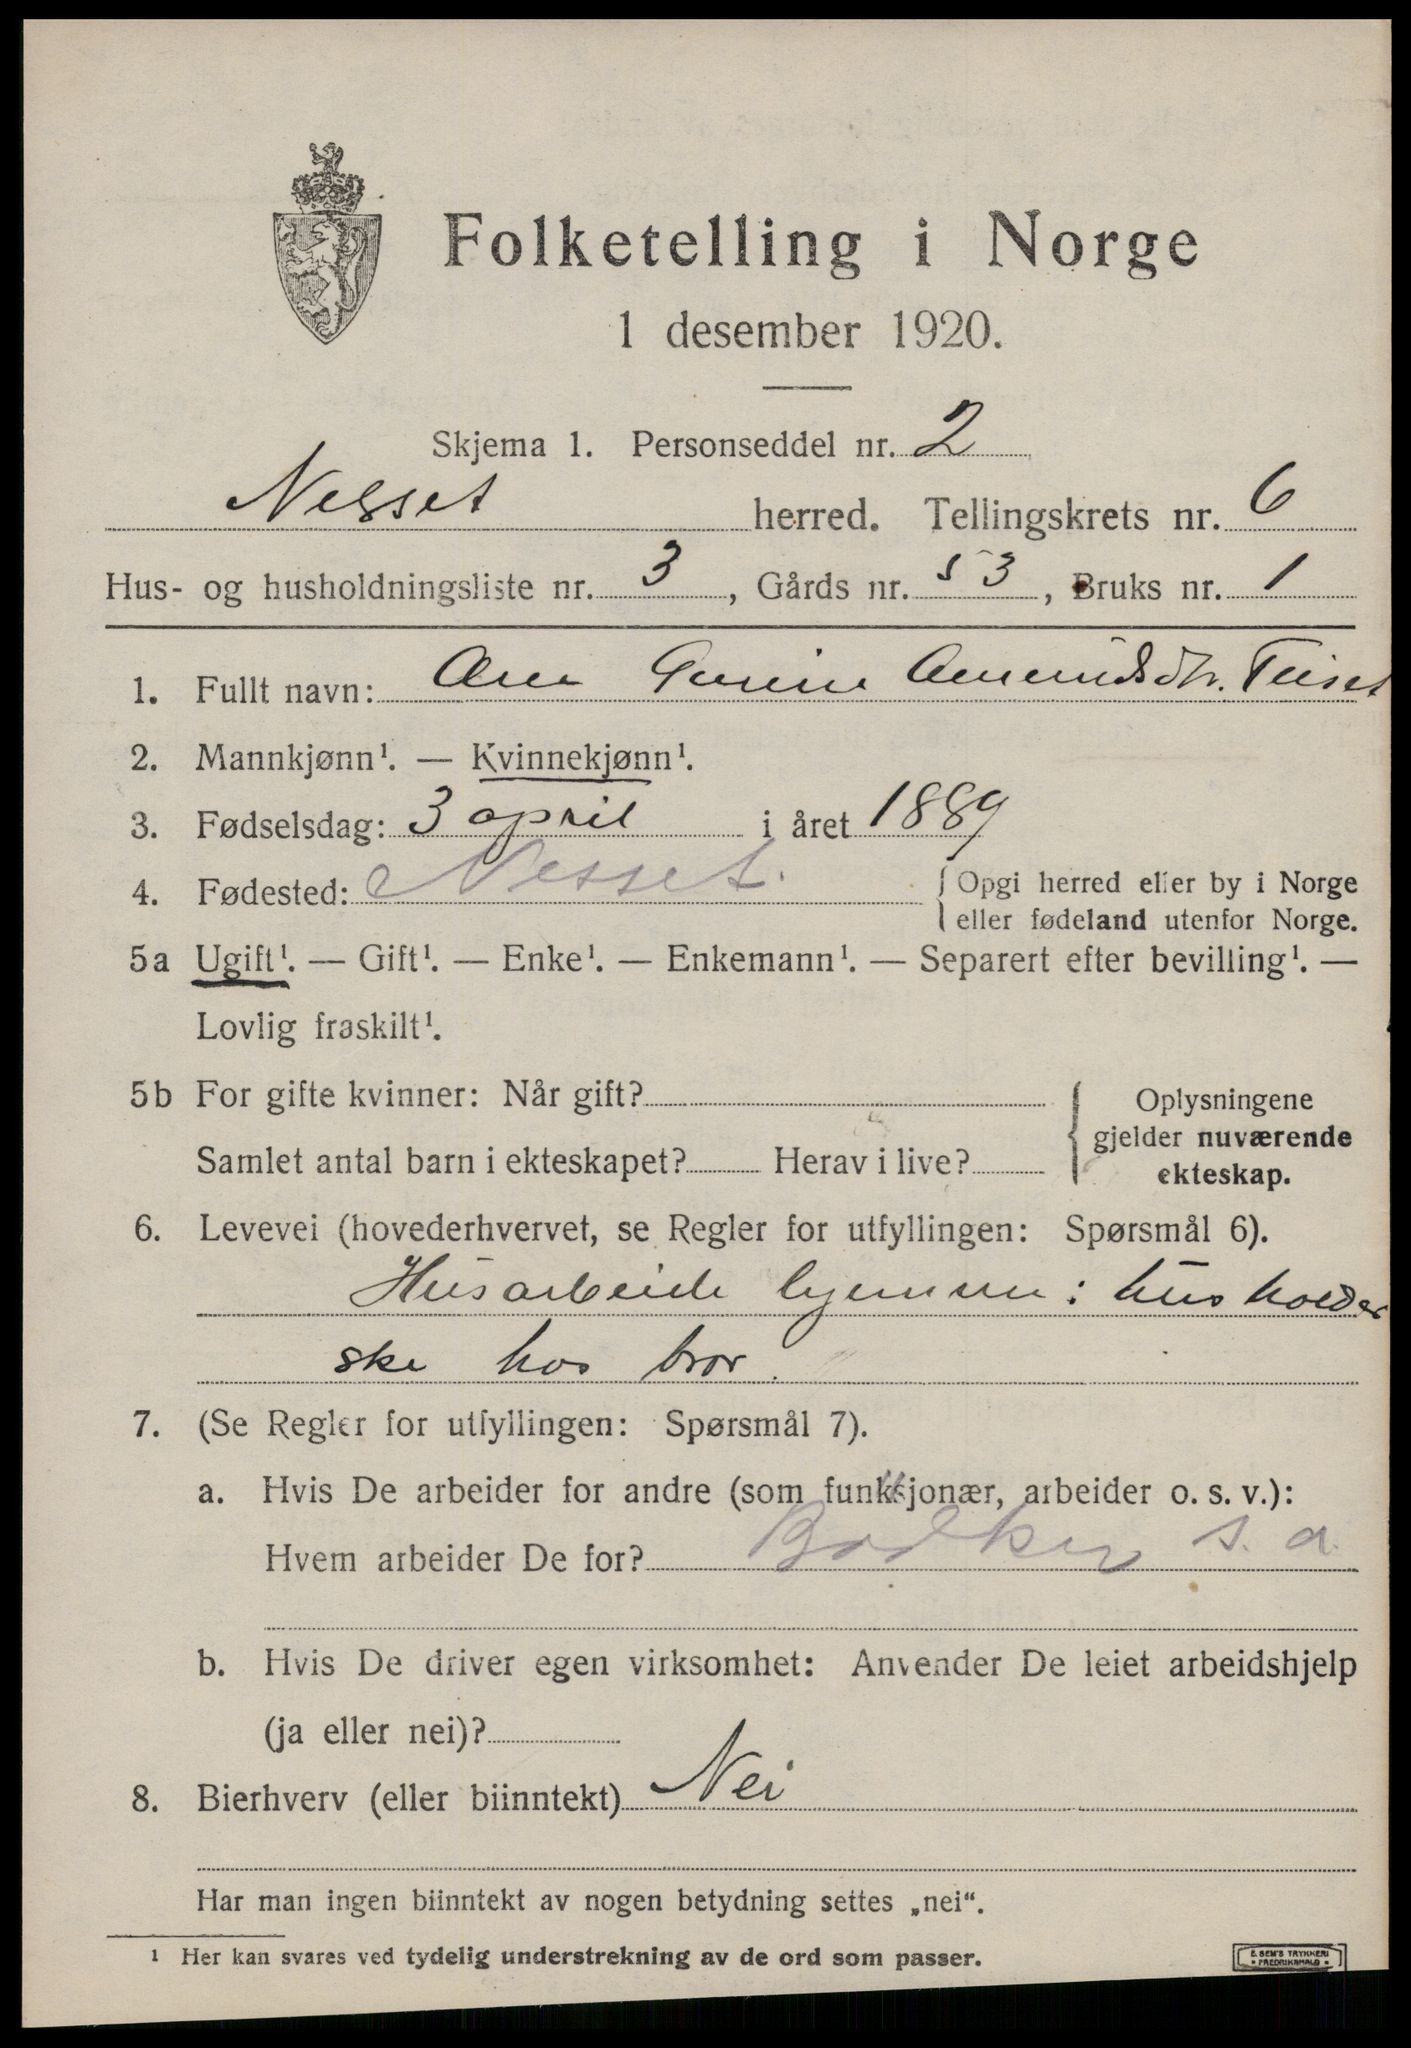 Folketelling i Norge
1 desember 1920.
Skjema 1. Personseddel nr. 2
Nesset herred. Tellingskrets nr. 6
Hus- og husholdningsliste nr. 3, Gårds nr. 53, Bruks nr. 1
1. Fullt navn:
2. Mannkjønn¹. — Kvinnekjønn¹.
3. Fødselsdag: 3 april i året 1889
4. Fødested: Nesset. Opgi herred eller by i Norge
eller fødeland utenfor Norge.
5a Ugift¹. — Gift¹. — Enke¹. — Enkemann¹. — Separert efter bevilling¹. —
Lovlig fraskilt¹.
5b For gifte kvinner: Når gift?
Samlet antal barn i ekteskapet? Herav i live?
Oplysningene
gjelder nuværende
ekteskap.
6. Levevei (hovederhvervet, se Regler for utfyllingen: Spørsmål 6).
Husarbeide hjemme: husholder
ske hos bror.
7. (Se Regler for utfyllingen: Spørsmål 7).
a. Hvis De arbeider for andre (som funksjonær, arbeider o. s. v.):
Hvem arbeider De for? s. d.
b. Hvis De driver egen virksomhet: Anvender De leiet arbeidshjelp
(ja eller nei)?
8. Bierhverv (eller biinntekt) Nei
Har man ingen biinntekt av nogen betydning settes „nei“.
¹ Her kan svares ved tydelig understrekning av de ord som passer.
E. SEM'S TRYKKERI
FREDRIKSHALD